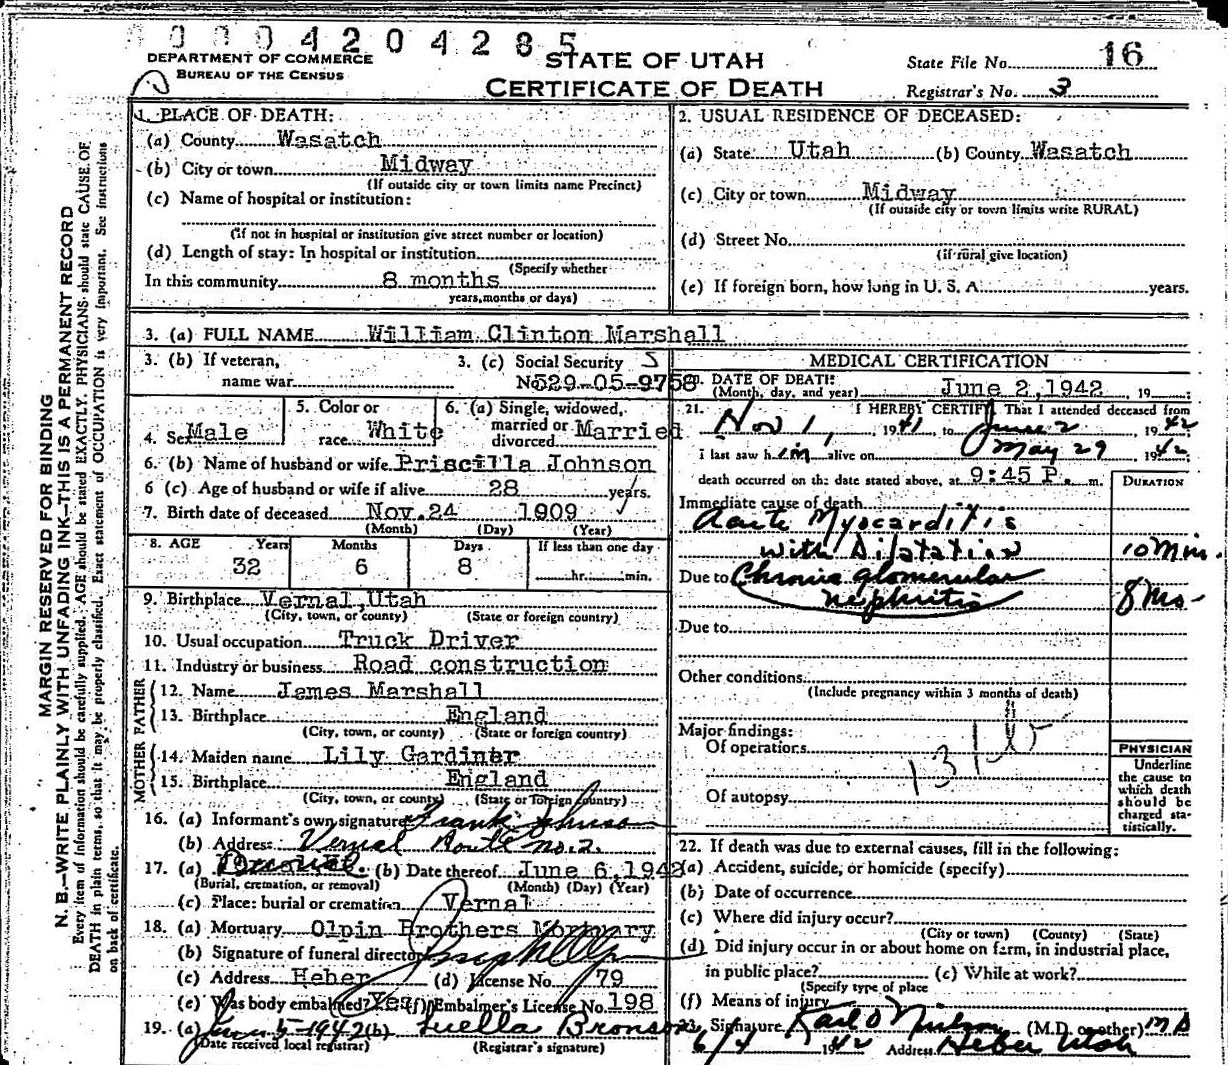 0 0 0 4 2 0 4 2 8 5
DEPARTMENT OF COMMERCE
BUREAU OF THE CENSUS
STATE OF UTAH
CERTIFICATE OF DEATH
State File No. 16
Registrar's No. 3
MARGIN RESERVED FOR BINDING
N. B.—WRITE PLAINLY WITH UNFADING INK—THIS IS A PERMANENT RECORD
Every item of information should be carefully supplied. AGE should be stated EXACTLY. PHYSICIANS should state CAUSE OF
DEATH in plain terms, so that it may be properly classified. Exact statement of OCCUPATION is very important. See instructions
on back of certificate.
1. PLACE OF DEATH:
(a) County Wasatch
(b) City or town Midway
(If outside city or town limits name Precinct)
(c) Name of hospital or institution:
(If not in hospital or institution give street number or location)
(d) Length of stay: In hospital or institution
(Specify whether
In this community 8 months
years, months or days)
2. USUAL RESIDENCE OF DECEASED:
(a) State Utah (b) County Wasatch
(c) City or town Midway
(If outside city or town limits write RURAL)
(d) Street No.
(if rural give location)
(e) If foreign born, how long in U. S. A. years.
3. (a) FULL NAME William Clinton Marshall
3. (b) If veteran,
name war
3. (c) Social Security
No 529-05-9758
4. Sex Male
5. Color or
race White
6. (a) Single, widowed,
married or
divorced Married
6. (b) Name of husband or wife Priscilla Johnson
6 (c) Age of husband or wife if alive 28 years.
7. Birth date of deceased Nov. 24 1909
(Month) (Day) (Year)
8. AGE Years Months Days If less than one day
32 6 8 hr. min.
9. Birthplace Vernal, Utah
(City, town, or county) (State or foreign country)
10. Usual occupation Truck Driver
11. Industry or business Road construction
FATHER
12. Name James Marshall
13. Birthplace England
(City, town, or county) (State or foreign country)
MOTHER
14. Maiden name Lily Gardiner
15. Birthplace England
(City, town, or county) (State or foreign country)
16. (a) Informant's own signature Frank Johnson
(b) Address Vernal Route no. 2.
17. (a) Removal. (b) Date thereof June 6, 1942
(Burial, cremation, or removal) (Month) (Day) (Year)
(c) Place: burial or cremation Vernal
18. (a) Mortuary Olpin Brothers Mortuary
(b) Signature of funeral director
(c) Address Heber (d) License No. 79
(e) Was body embalmed? Yes (f) Embalmer's License No. 198
19. (a) June 5-1942 (b) Luella Bronson
(Date received local registrar) (Registrar's signature)
MEDICAL CERTIFICATION
20. DATE OF DEATH: June 2, 1942 19
(Month, day, and year)
21. I HEREBY CERTIFY That I attended deceased from
Nov 1, 1941 to June 2 1942
I last saw him alive on May 29 1942
death occurred on the date stated above, at 9:45 P. m.
DURATION
Immediate cause of death
Acute Myocarditis
with Dilatation 10 Min.
Due to Chronic glomerular
nephritis 8 Mo-
Due to
Other conditions
(Include pregnancy within 3 months of death)
Major findings:
Of operations
Of autopsy
PHYSICIAN
Underline
the cause to
which death
should be
charged sta-
tistically.
22. If death was due to external causes, fill in the following:
(a) Accident, suicide, or homicide (specify)
(b) Date of occurrence
(c) Where did injury occur?
(City or town) (County) (State)
(d) Did injury occur in or about home on farm, in industrial place,
in public place? (c) While at work?
(Specify type of place
(f) Means of injury
23. Signature Karl O Nielson (M.D. or other) MD
6/4 1942 Address Heber Utah